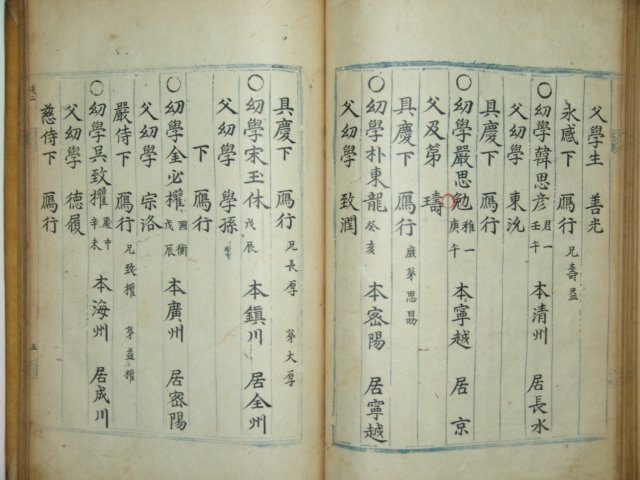 父學生 善光
永感下 鴈行 兄壽益
○幼學韓思彦 君一 壬午 本清州 居長水
父幼學 東洗
具慶下 鴈行
○幼學嚴思勉 稚一 庚午 本寧越 居京
父及第 璹
具慶下 鴈行 弟思勗
○幼學朴東龍 癸亥 本密陽 居寧越
父幼學 致潤
具慶下 鴈行 兄長厚 弟大厚
○幼學宋玉休 戊辰 本鎮川 居全州
父幼學 學孫
下 鴈行
○幼學金必權 國衡 戊辰 本廣州 居密陽
父幼學 宗洛
嚴侍下 鴈行 兄致權 弟益權
○幼學吳致權 辛未 本海州 居成川
父幼學 德履
慈侍下 鴈行
三